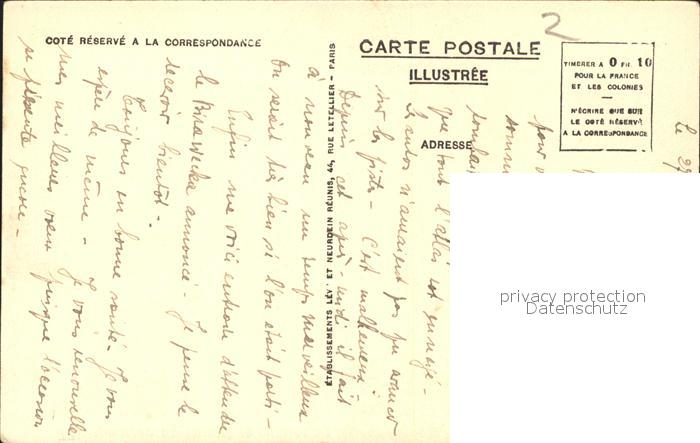 2
COTÉ RÉSERVÉ A LA CORRESPONDANCE
CARTE POSTALE
ILLUSTRÉE
ADRESSE
TIMBRER A 0 FR. 10
POUR LA FRANCE
ET LES COLONIES
N'ÉCRIRE QUE SUR
LE COTÉ RÉSERVÉ
A LA CORRESPONDANCE
ÉTABLISSEMENTS LÉVY ET NEURDEIN RÉUNIS, 44, RUE LETELLIER - PARIS
privacy protection
Datenschutz
Le 29
pour v
somm
que tout l'atlas est enneigé -
Les autos n'auraient pas pu avancer
sur la piste - C'est malheureux !
Depuis cet après-midi il fait
à nouveau un temps merveilleux
On serait très bien si l'on était parti -
Enfin me voici entrain d'attendre
le annoncé - Je pense le
recevoir bientôt -
Toujours en bonne santé - Je vous
espère de même - Je vous renouvelle
mes meilleurs vœux puisque l'occasion
se présente encore -